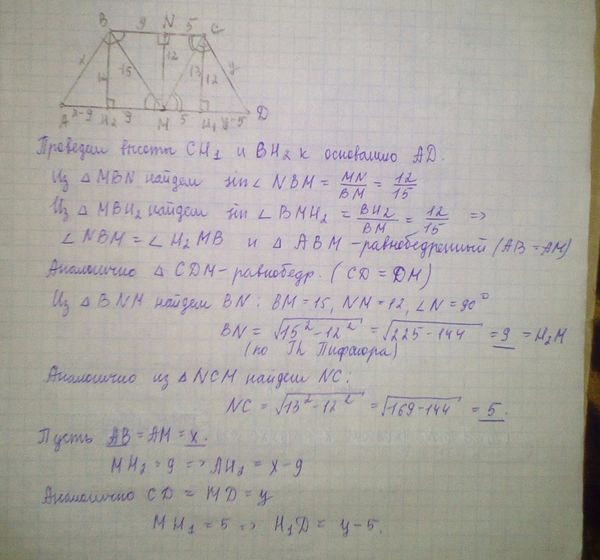 B 9 N 5 C
x 12 15 12 13 12 y
A x-9 H₂ 9 M 5 H₁ y-5 D
Проведем высоты CH₁ и BH₂ к основанию AD.
Из △ MBN найдем sin∠ NBM = MN/BM = 12/15
Из △ MBH₂ найдем sin ∠ BMH₂ = BH₂/BM = 12/15 =>
∠ NBM = ∠ H₂MB и △ ABM - равнобедренный (AB = AM)
Аналогично △ CDM - равнобедр. (CD = DM)
Из △ BNM найдем BN: BM = 15, NM = 12, ∠N = 90°
BN = √(15² - 12²) = √(225 - 144) = 9 = H₂M
(по Th Пифагора)
Аналогично из △ NCM найдем NC:
NC = √(13² - 12²) = √(169 - 144) = 5.
Пусть AB = AM = x.
MH₂ = 9 => AH₂ = x - 9
Аналогично CD = MD = y
MH₁ = 5 => H₁D = y - 5.